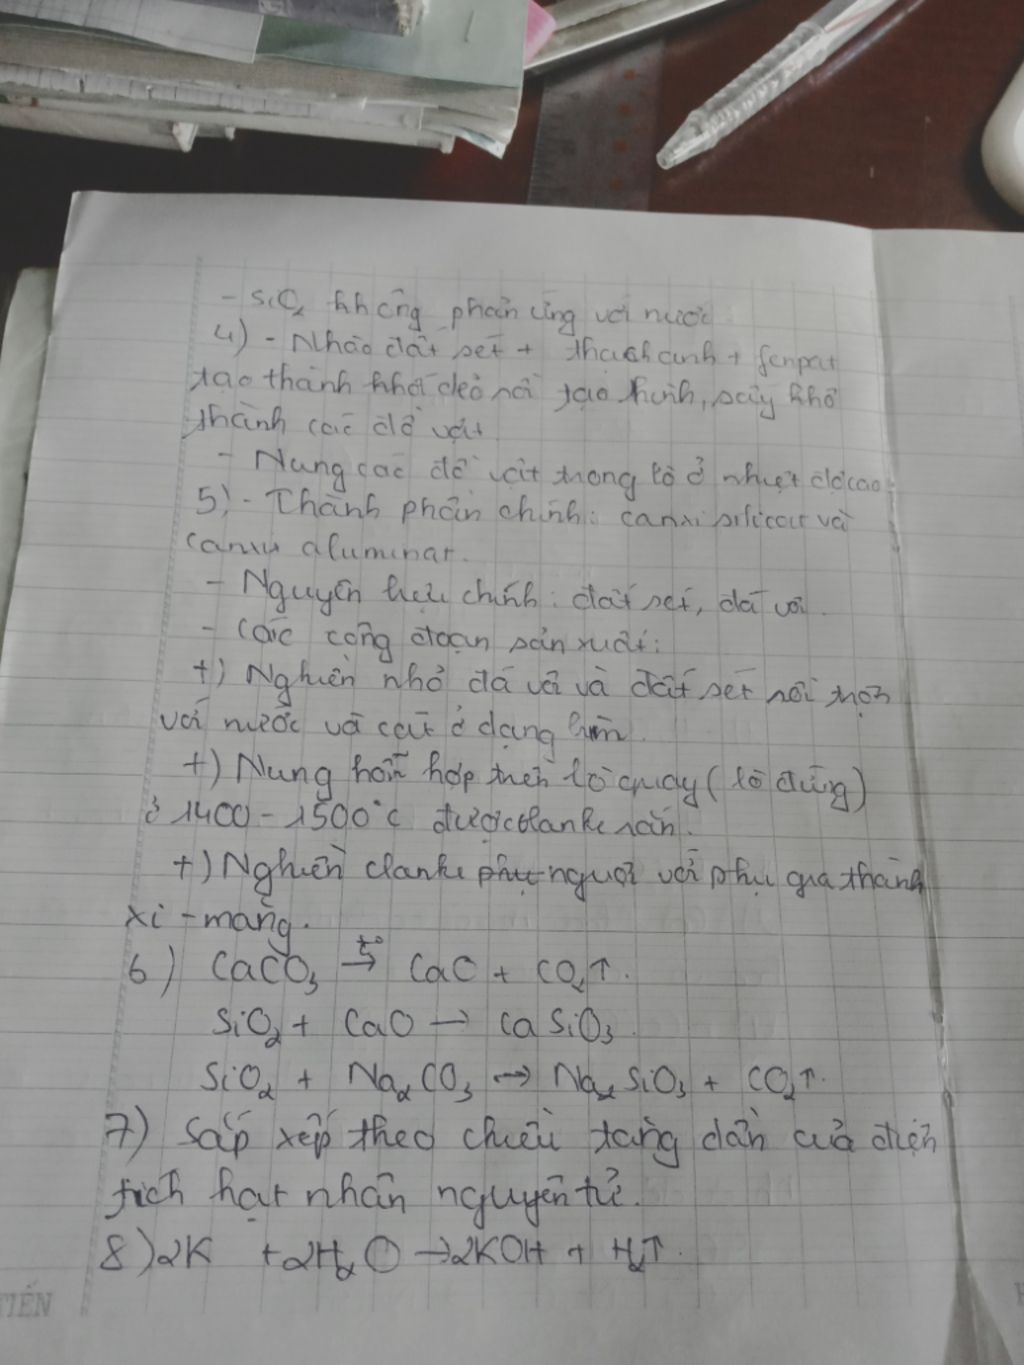 - SiO₂ không phản ứng với nước
4) - Nhào đất sét + thạch anh + fenpat
tạo thành khối dẻo rồi tạo hình, sấy khô
thành các đồ vật
- Nung các đồ vật trong lò ở nhiệt độ cao
5) - Thành phần chính: canxi silicat và
canxi aluminat.
- Nguyên liệu chính: đất sét, đá vôi.
- Các công đoạn sản xuất:
+) Nghiền nhỏ đá vôi và đất sét rồi trộn
với nước và cát ở dạng bùn.
+) Nung hỗn hợp trên lò quay (lò đứng)
ở 1400 - 1500°C được clanke rắn.
+) Nghiền clanke nguội với phụ gia thành
xi-măng.
6) CaCO₃ →t° CaO + CO₂↑.
SiO₂ + CaO → CaSiO₃.
SiO₂ + Na₂CO₃ → Na₂SiO₃ + CO₂↑.
7) Sắp xếp theo chiều tăng dần của điện
tích hạt nhân nguyên tử.
8) 2K + 2H₂O → 2KOH + H₂↑.
TIẾN